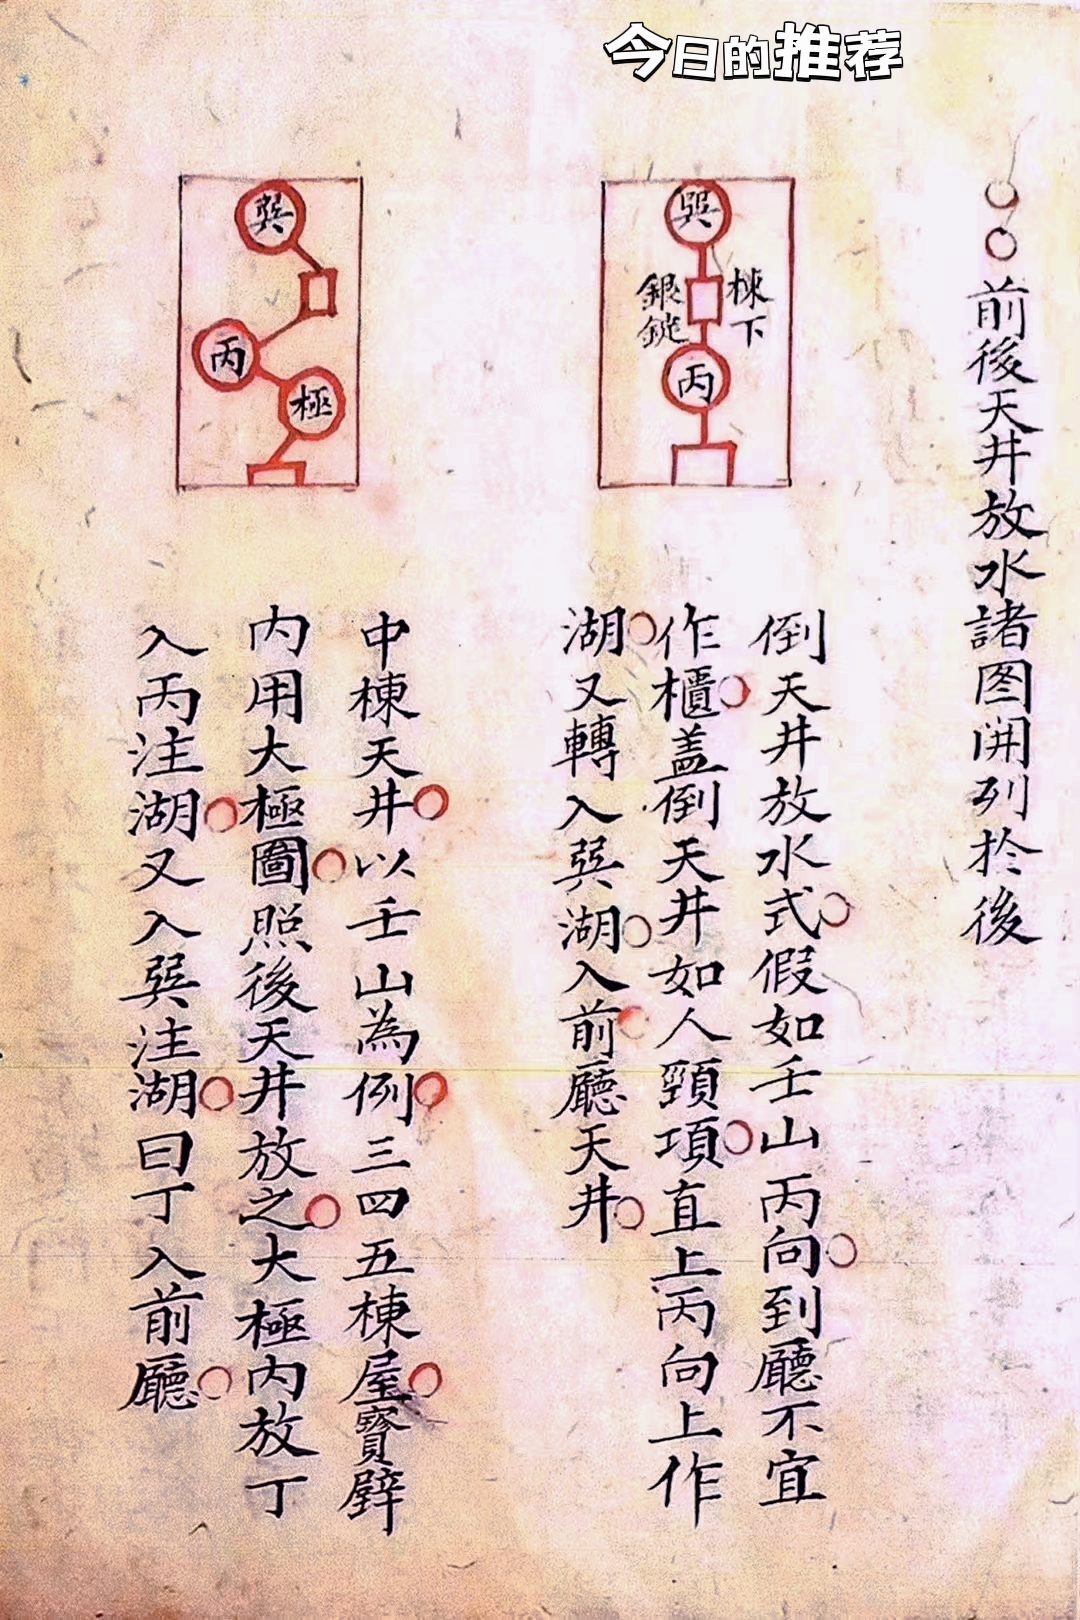 今日的推荐
前後天井放水諸图開列於後
巽
棟下
銀錠
丙
倒天井放水式假如壬山丙向到廳不宜
作櫃盖倒天井如人頸項直上丙向上作
湖又轉入巽湖入前廳天井
巽
丙
極
中棟天井以壬山為例三四五棟屋寳壁
内用大極圖照後天井放之大極内放丁
入丙注湖又入巽注湖曰丁入前廳